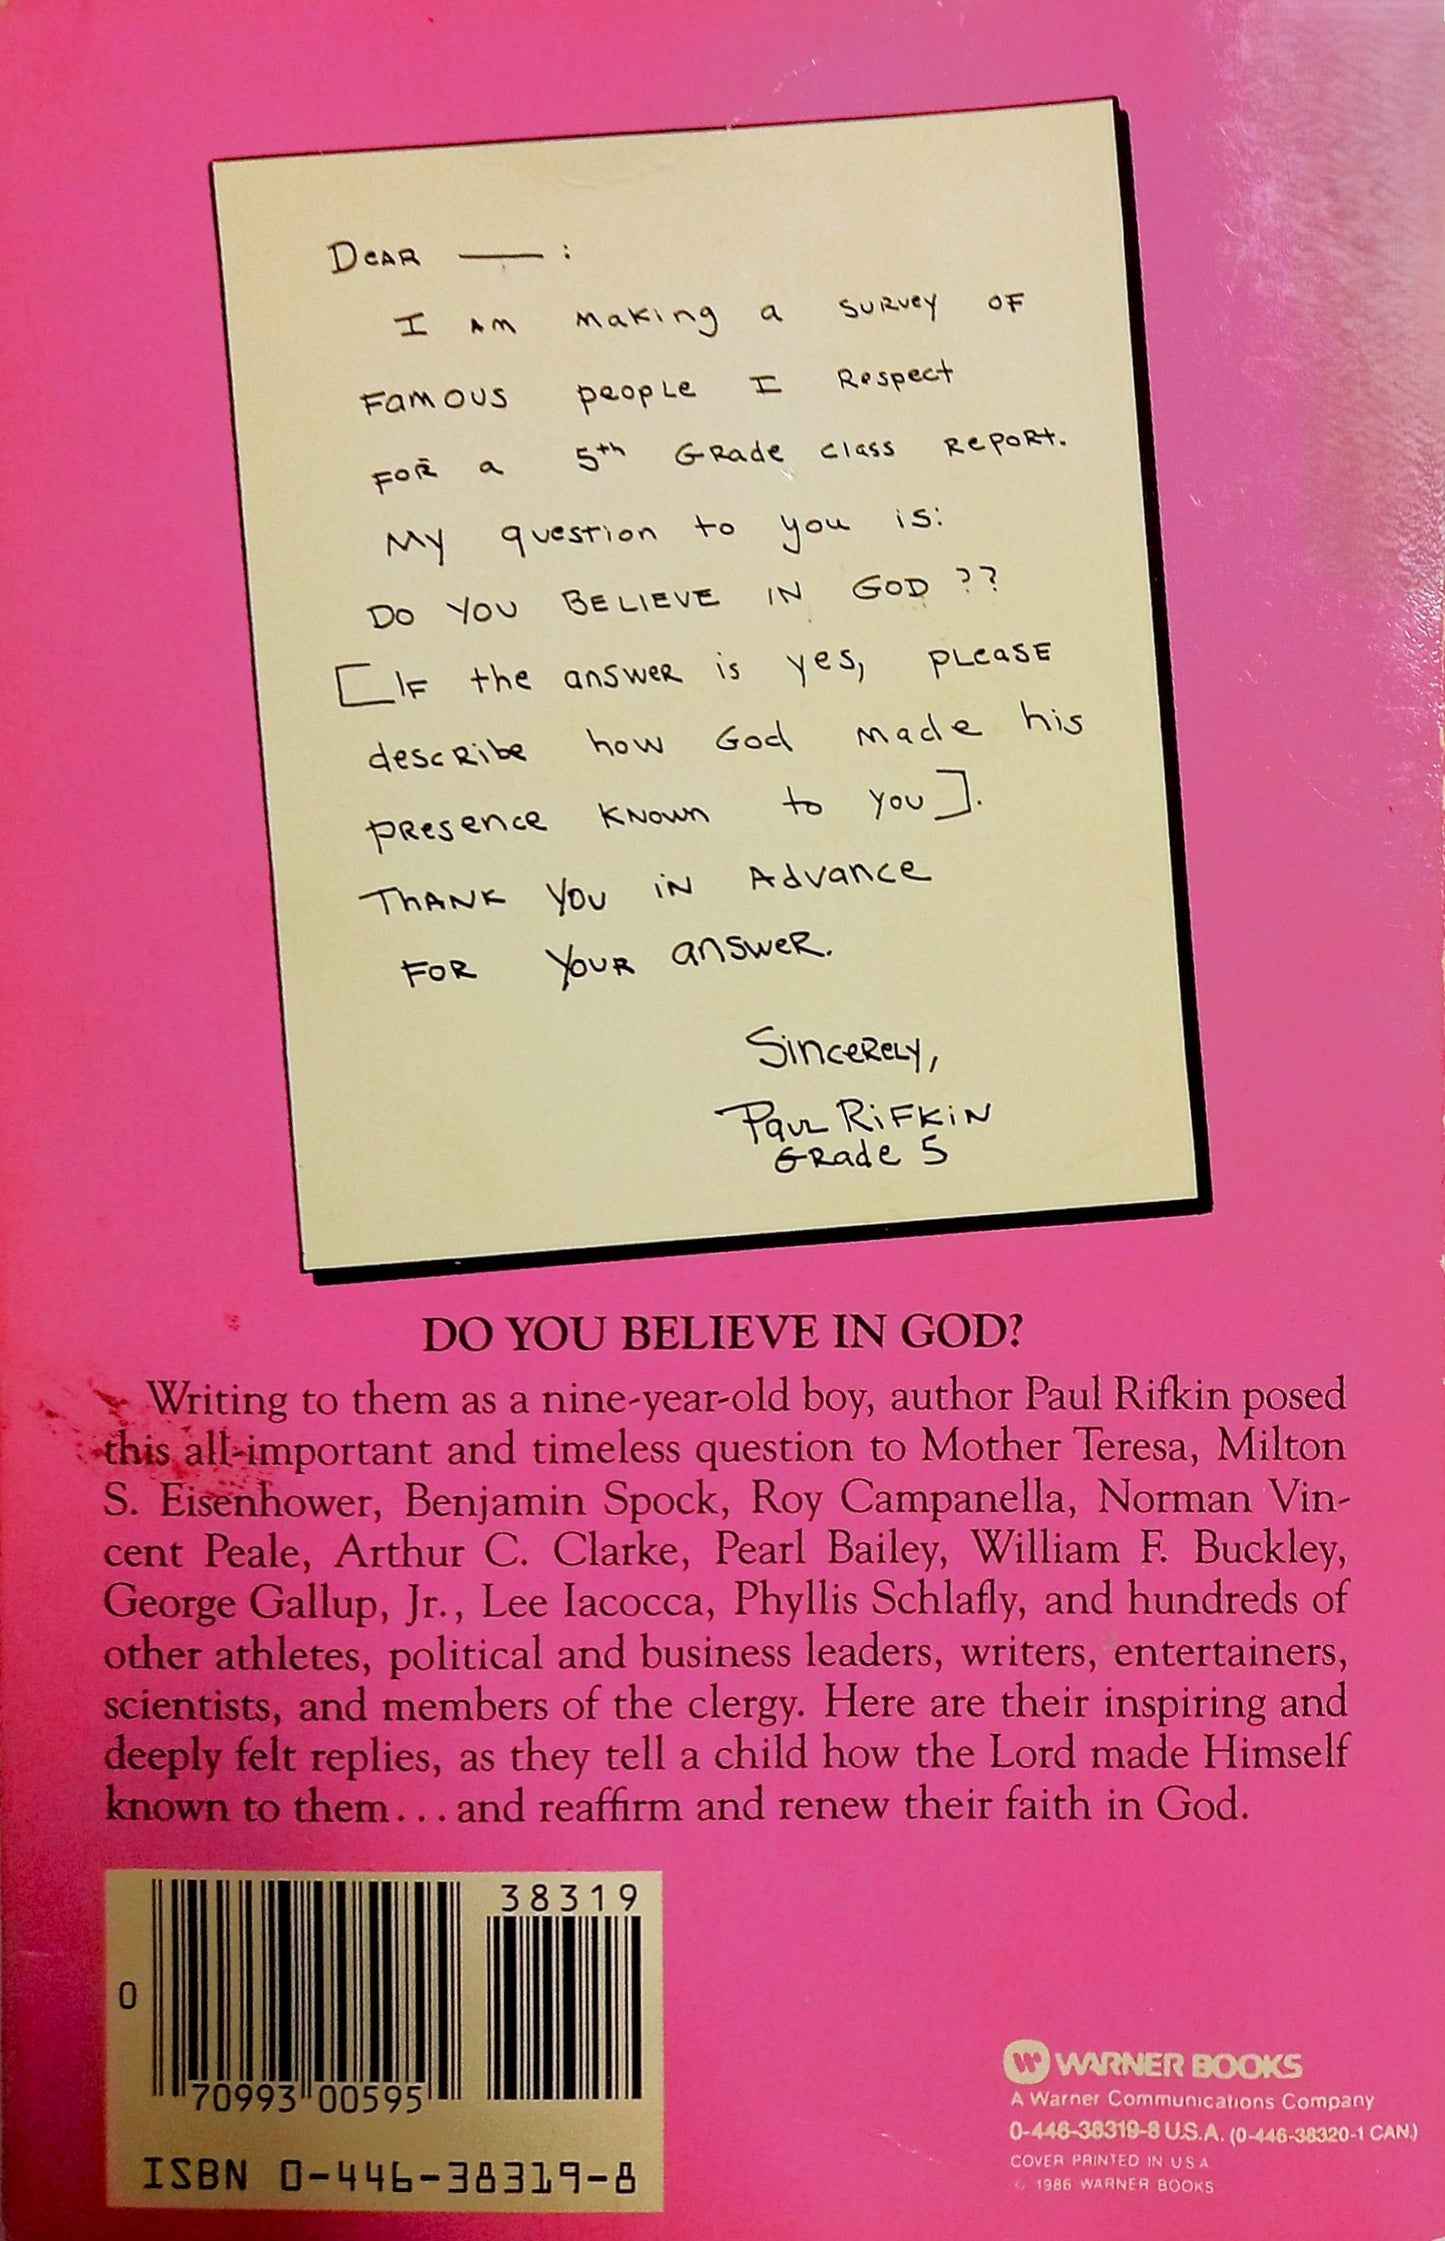 Dear —— :
I am making a survey of
famous people I respect
for a 5th Grade class report.
My question to you is:
DO YOU BELIEVE IN GOD ??
[If the answer is yes, please
describe how God made his
presence known to you].
Thank you in Advance
for your answer.
Sincerely,
Paul Rifkin
Grade 5
DO YOU BELIEVE IN GOD?
Writing to them as a nine-year-old boy, author Paul Rifkin posed
this all-important and timeless question to Mother Teresa, Milton
S. Eisenhower, Benjamin Spock, Roy Campanella, Norman Vin-
cent Peale, Arthur C. Clarke, Pearl Bailey, William F. Buckley,
George Gallup, Jr., Lee Iacocca, Phyllis Schlafly, and hundreds of
other athletes, political and business leaders, writers, entertainers,
scientists, and members of the clergy. Here are their inspiring and
deeply felt replies, as they tell a child how the Lord made Himself
known to them...and reaffirm and renew their faith in God.
38319
0
70993 00595
ISBN 0-446-38319-8
WARNER BOOKS
A Warner Communications Company
0-446-38319-8 U.S.A. (0-446-38320-1 CAN.)
COVER PRINTED IN U S A
© 1986 WARNER BOOKS